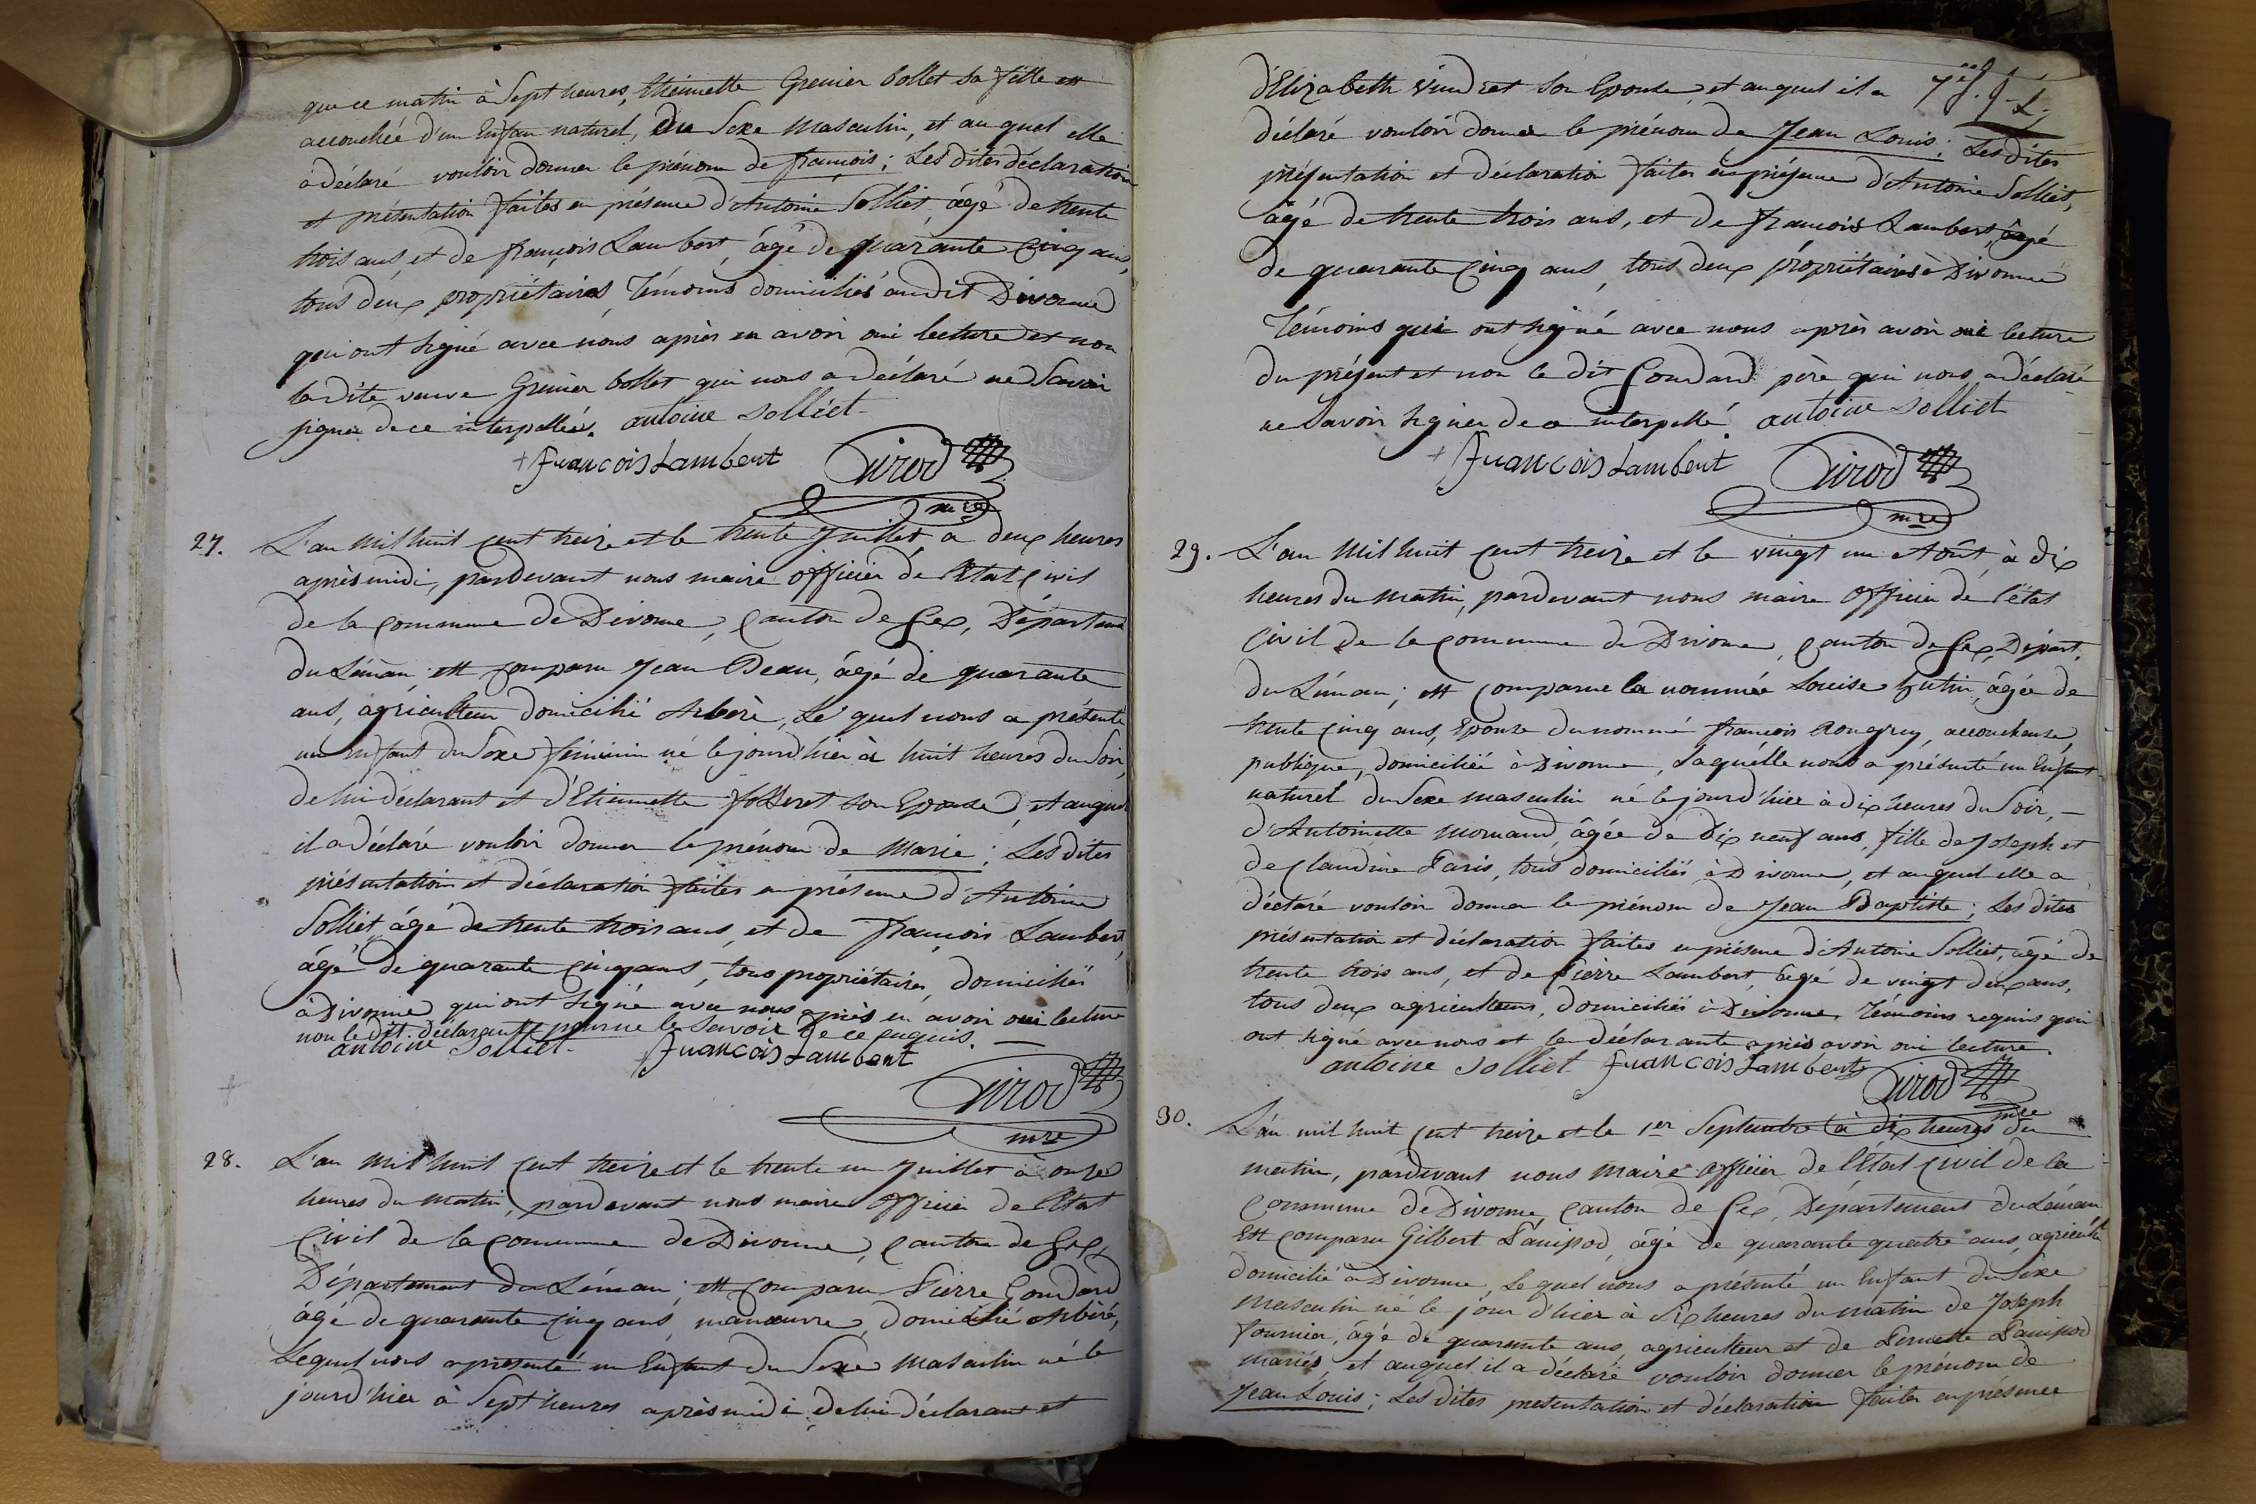 que ce matin à Sept heures, Etiennette Grenier bollet sa fille est
accouchée d'un Enfan naturel, du Sexe Masculin, et au quel elle
a déclaré vouloir donner le prénom de françois; Les dites déclaration
et présentation faites en présence d'Antoine Solliet, âgé de trente
trois ans, et de françois Lambert, âgé de quarante Cinq ans,
tous deux propriétaires Témoins domiciliés audit Divonne
qui ont signé avec nous après en avoir oui lecture et non
la dite veuve Grenier bollet qui nous a déclaré ne Savoir
signer de ce interpellée. antoine Solliet
+ françois Lambert Girod
mre
27. L'an Mil huit Cent treize et le trente Juillet à deux heures
après midi, pardevant nous maire officier de l'Etat Civil
de la Commune de Divonne, Canton de Gex, Départemt
du Léman; est comparu Jean Beau, âgé de quarante
ans, agriculteur domicilié Arbère, Le quel nous a présenté
un Enfant du Sexe féminin né le jourd'hier à huit heures du Soir,
de lui déclarant et d'Etiennette son Epouse, et auquel
il a déclaré vouloir donner le prénom de Marie; Les dites
présentation et déclaration faites en présence d'Antoine
Solliet âgé de trente trois ans, et de françois Lambert,
âgé de quarante Cinq ans, tous propriétaires, domiciliés
à Divonne qui ont signé avec nous après en avoir oui lecture
non le dit déclarant pour ne le savoir de ce enquis.
antoine Solliet françois Lambert
Girod
mre
28. L'an Mil huit Cent treize et le trente un Juillet à onze
heures du Matin, pardevant nous maire Officier de l'Etat
Civil de la Commune de Divonne, Canton de Gex,
Département du Léman; est comparu Pierre Goudard
âgé de quarante Cinq ans, manœuvre, domicilié Arbère,
Lequel nous a présenté un Enfant du Sexe Masculin né le
jourd'hier à Sept heures après midi de lui déclarant et
d'Elizabeth Vindret Son Epouse, et auquel il a
déclaré vouloir donner le prénom de Jean Louis; Les dites
présentation et déclaration faites en présence d'Antoine Solliet,
âgé de trente trois ans, et de françois Lambert, âgé
de quarante Cinq ans, tous deux propriétaires à Divonne
Témoins qui ont signé avec nous après avoir oui lecture
du présent et non le dit Goudard père qui nous a déclaré
ne Savoir signer de ce interpellé. antoine Solliet
+ françois Lambert Girod
mre
29. L'an Mil huit Cent treize et le vingt un Août, à dix
heures du Matin, pardevant nous maire Officier de l'état
Civil de la Commune de Divonne, Canton de Gex, Départ.
du Léman; est comparue la nommée Louise hutin, âgée de
trente Cinq ans, Epouse du nommé françois accoucheuse
publique, domiciliée à Divonne, Laquelle nous a présenté un Enfant
naturel du Sexe masculin né le jourd'hier à dix heures du Soir, –
d'Antoinette Mornand, âgée de Dix neuf ans, fille de Joseph et
de Claudine Paris, tous domiciliés à Divonne, et auquel elle a
déclaré vouloir donner le prénom de Jean Baptiste; Les dites
présentation et déclaration faites en présence d'Antoine Solliet, âgé de
trente trois ans, et de Pierre Lambert, âgé de vingt deux ans,
tous deux agriculteurs, domiciliés à Divonne, Témoins requis qui
ont signé avec nous et la déclarante après avoir oui lecture.
antoine Solliet françois Lambert Girod
mre
30. L'an mil huit Cent treize et le 1er Septembre à dix heures du
matin, pardevant nous Maire officier de l'Etat Civil de la
Commune de Divonne Canton de Gex, Département du Léman
Est comparu Gilbert Panissod, âgé de quarante quatre ans, agricult
domicilié à Divonne, Le quel nous a présenté un Enfant du Sexe
Masculin né le jour d'hier à Six heures du matin de Joseph
fournier, âgé de quarante ans, agriculteur et de Pernette Panissod
mariés, et auquel il a déclaré vouloir donner le prénom de
Jean Louis; Les dites présentation et déclaration faites en présence